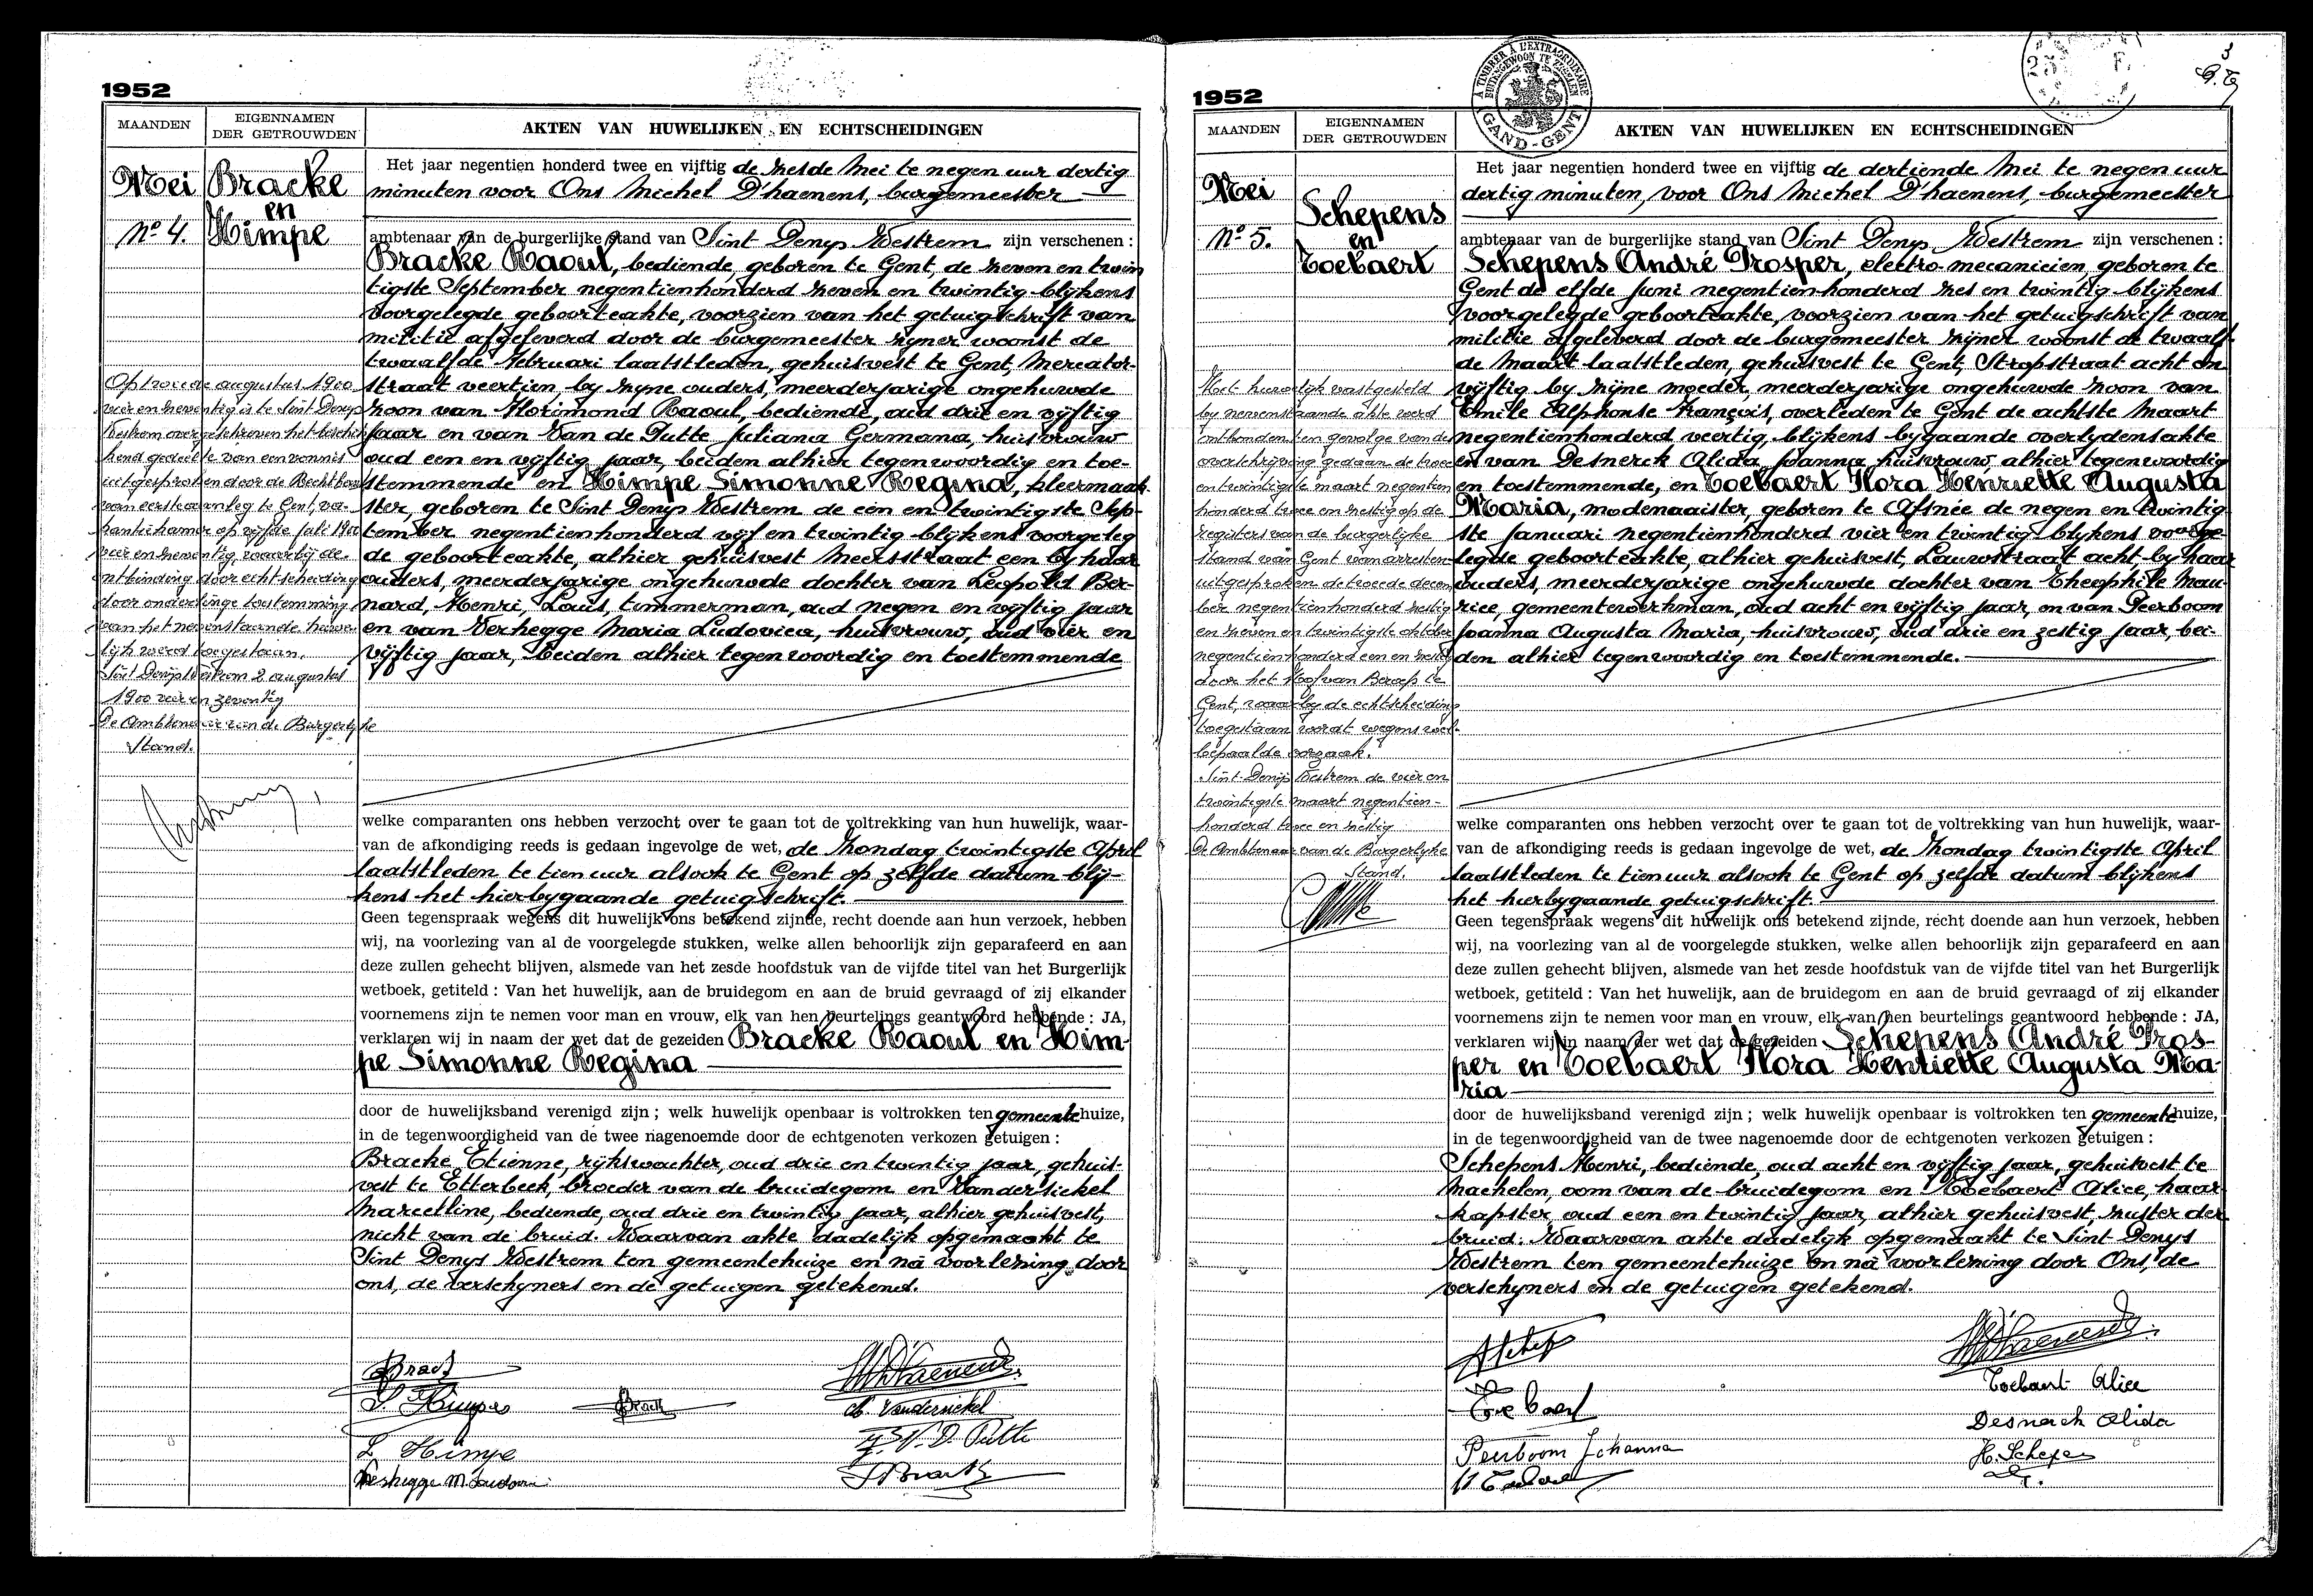 1952
MAANDEN
EIGENNAMEN
DER GETROUWDEN
AKTEN VAN HUWELIJKEN EN ECHTSCHEIDINGEN
Mei
Bracke
en
Himpe
No 4.
Het jaar negentien honderd twee en vijftig de zesde Mei te negen uur dertig
minuten voor Ons Michel D'haenens, burgemeester
ambtenaar van de burgerlijke stand van Sint Denys Westrem zijn verschenen :
Bracke Raoul, bediende, geboren te Gent, de zeven en twin
tigste September negentienhonderd zeven en twintig blijkens
voorgelegde geboorteakte, voorzien van het getuigschrift van
militie afgeleverd door de burgemeester zijner woonst de
twaalfde Februari laatstleden, gehuisvest te Gent, Mercator-
straat veertien, by zyne ouders, meerderjarige ongehuwde
zoon van Florimond Raoul, bediende, oud drie en vijftig
jaar en van Van de Putte Juliana Germana, huisvrouw
oud een en vyftig jaar, beiden alhier tegenwoordig en toe-
stemmende en Himpe Simonne Regina, kleermaak-
ster, geboren te Sint Denys Westrem de een en twintigste Sep-
tember negentienhonderd vijf en twintig blijkens voorgeleg
de geboorteakte, alhier gehuisvest Meersstraat een by haar
ouders, meerderjarige ongehuwde dochter van Léopold Ber-
nard, Henri, Louis, timmerman, oud negen en vyftig jaar
en van Verhegge Maria Ludovica, huisvrouw, oud vier en
vijftig jaar, beiden alhier tegenwoordig en toestemmende
Op tweede augustus 1900
vier en zeventig is te Sint Denys
Westrem overgeschreven het beschik
kend gedeelte van een vonnis
uitgesproken door de Rechtbank
van eerste aanleg te Gent, va-
kantiekamer op vijfde juli 1900
vier en zeventig, waarbij de
ontbinding door echtscheiding
door onderlinge toestemming
van het nevenstaande huwe-
lijk werd toegestaan.
Sint Denijs Westrem 2 augustus
1900 vier en zeventig
De Ambtenaar van de Burgerlijke
Stand.
welke comparanten ons hebben verzocht over te gaan tot de voltrekking van hun huwelijk, waar-
van de afkondiging reeds is gedaan ingevolge de wet, de Zondag twintigste April
laatstleden te tien uur alsook te Gent op zelfde datum blij-
kens het hierbygaande getuigschrift.
Geen tegenspraak wegens dit huwelijk ons betekend zijnde, recht doende aan hun verzoek, hebben
wij, na voorlezing van al de voorgelegde stukken, welke allen behoorlijk zijn geparafeerd en aan
deze zullen gehecht blijven, alsmede van het zesde hoofdstuk van de vijfde titel van het Burgerlijk
wetboek, getiteld : Van het huwelijk, aan de bruidegom en aan de bruid gevraagd of zij elkander
voornemens zijn te nemen voor man en vrouw, elk van hen beurtelings geantwoord hebbende : JA,
verklaren wij in naam der wet dat de gezeiden Bracke Raoul en Him-
pe Simonne Regina
door de huwelijksband verenigd zijn ; welk huwelijk openbaar is voltrokken ten gemeentehuize,
in de tegenwoordigheid van de twee nagenoemde door de echtgenoten verkozen getuigen :
Bracke Etienne, rijkswachter, oud drie en twintig jaar, gehuis-
vest te Etterbeek, broeder van de bruidegom en Vandersickel
Marcelline, bediende, oud drie en twintig jaar, alhier gehuisvest,
nicht van de bruid. Waarvan akte dadelijk opgemaakt te
Sint Denys Westrem ten gemeentehuize en na voorlezing door
ons, de verschyners en de getuigen getekend.
S. Himpe
M. Vandersickel
L Himpe
J. V. D. Putte
Verhegge M. Ludovica
1952
À TIMBRER À L'EXTRAORDINAIRE
BUITENGEWOON TE ZEGELEN
GAND-GENT
3
MAANDEN
EIGENNAMEN
DER GETROUWDEN
AKTEN VAN HUWELIJKEN EN ECHTSCHEIDINGEN
Mei
No 5.
Schepens
en
Toebaert
Het jaar negentien honderd twee en vijftig de dertiende Mei te negen uur
dertig minuten, voor Ons Michel D'haenens, burgemeester
ambtenaar van de burgerlijke stand van Sint Denys Westrem zijn verschenen :
Schepens André Prosper, elektro-mecanicien, geboren te
Gent de elfde Juni negentienhonderd zes en twintig blijkens
voorgelegde geboorteakte, voorzien van het getuigschrift van
militie afgeleverd door de burgemeester zijner woonst de twaalf-
de Maart laatstleden, gehuisvest te Gent, Stropstraat acht en
vijftig by zijne moeder, meerderjarige ongehuwde zoon van
Emile Alphonse François, overleden te Gent de achtste Maart
negentienhonderd veertig, blijkens bygaande overlydensakte
en van Desnerck Alida Joanna huisvrouw, alhier tegenwoordig
en toestemmende, en Toebaert Flora Henriette Augusta
Maria, modenaaister, geboren te Afsnée de negen en twintig-
ste Januari negentienhonderd vier en twintig blijkens voorge-
legde geboorteakte, alhier gehuisvest, Lauwstraat acht, by haar
ouders, meerderjarige ongehuwde dochter van Theophile Mau-
rice, gemeentewerkman, oud acht en vijftig jaar, en van Peerboom
Joanna Augusta Maria, huisvrouw, oud drie en zestig jaar, bei-
den alhier tegenwoordig en toestemmende.
Het huwelijk vastgesteld
by nevenstaande akte werd
ontbonden ten gevolge van de
overschrijving gedaan de twee
en twintigste maart negentien
honderd twee en zestig op de
registers van de burgerlijke
stand van Gent van arresten
uitgesproken de tweede decem
ber negentienhonderd zestig
en zeven en twintigste oktober
negentienhonderd een en zestig
door het Hof van Beroep te
Gent, waarby de echtscheiding
toegestaan wordt wegens wel-
bepaalde oorzaak.
Sint Denijs Westrem de vier en
twintigste maart negentien-
honderd twee en zestig
De Ambtenaar van de Burgerlijke
Stand.
welke comparanten ons hebben verzocht over te gaan tot de voltrekking van hun huwelijk, waar-
van de afkondiging reeds is gedaan ingevolge de wet, de Zondag twintigste April
laatstleden te tien uur alsook te Gent op zelfde datum blijkens
het hierbygaande getuigschrift.
Geen tegenspraak wegens dit huwelijk ons betekend zijnde, recht doende aan hun verzoek, hebben
wij, na voorlezing van al de voorgelegde stukken, welke allen behoorlijk zijn geparafeerd en aan
deze zullen gehecht blijven, alsmede van het zesde hoofdstuk van de vijfde titel van het Burgerlijk
wetboek, getiteld : Van het huwelijk, aan de bruidegom en aan de bruid gevraagd of zij elkander
voornemens zijn te nemen voor man en vrouw, elk van hen beurtelings geantwoord hebbende : JA,
verklaren wij in naam der wet dat de gezeiden Schepens André Pros-
per en Toebaert Flora Henriette Augusta Ma-
ria
door de huwelijksband verenigd zijn ; welk huwelijk openbaar is voltrokken ten gemeentehuize,
in de tegenwoordigheid van de twee nagenoemde door de echtgenoten verkozen getuigen :
Schepens Henri, bediende, oud acht en vijftig jaar, gehuisvest te
Machelen, oom van de bruidegom en Toebaert Alice, haar-
kapster, oud een en twintig jaar, alhier gehuisvest, zuster der
bruid. Waarvan akte dadelijk opgemaakt te Sint Denys
Westrem ten gemeentehuize en na voorlezing door Ons, de
verschyners en de getuigen getekend.
Toebaert Alice
Toebaert
Desnerck Alida
Peerboom Johanna
H. Schepens